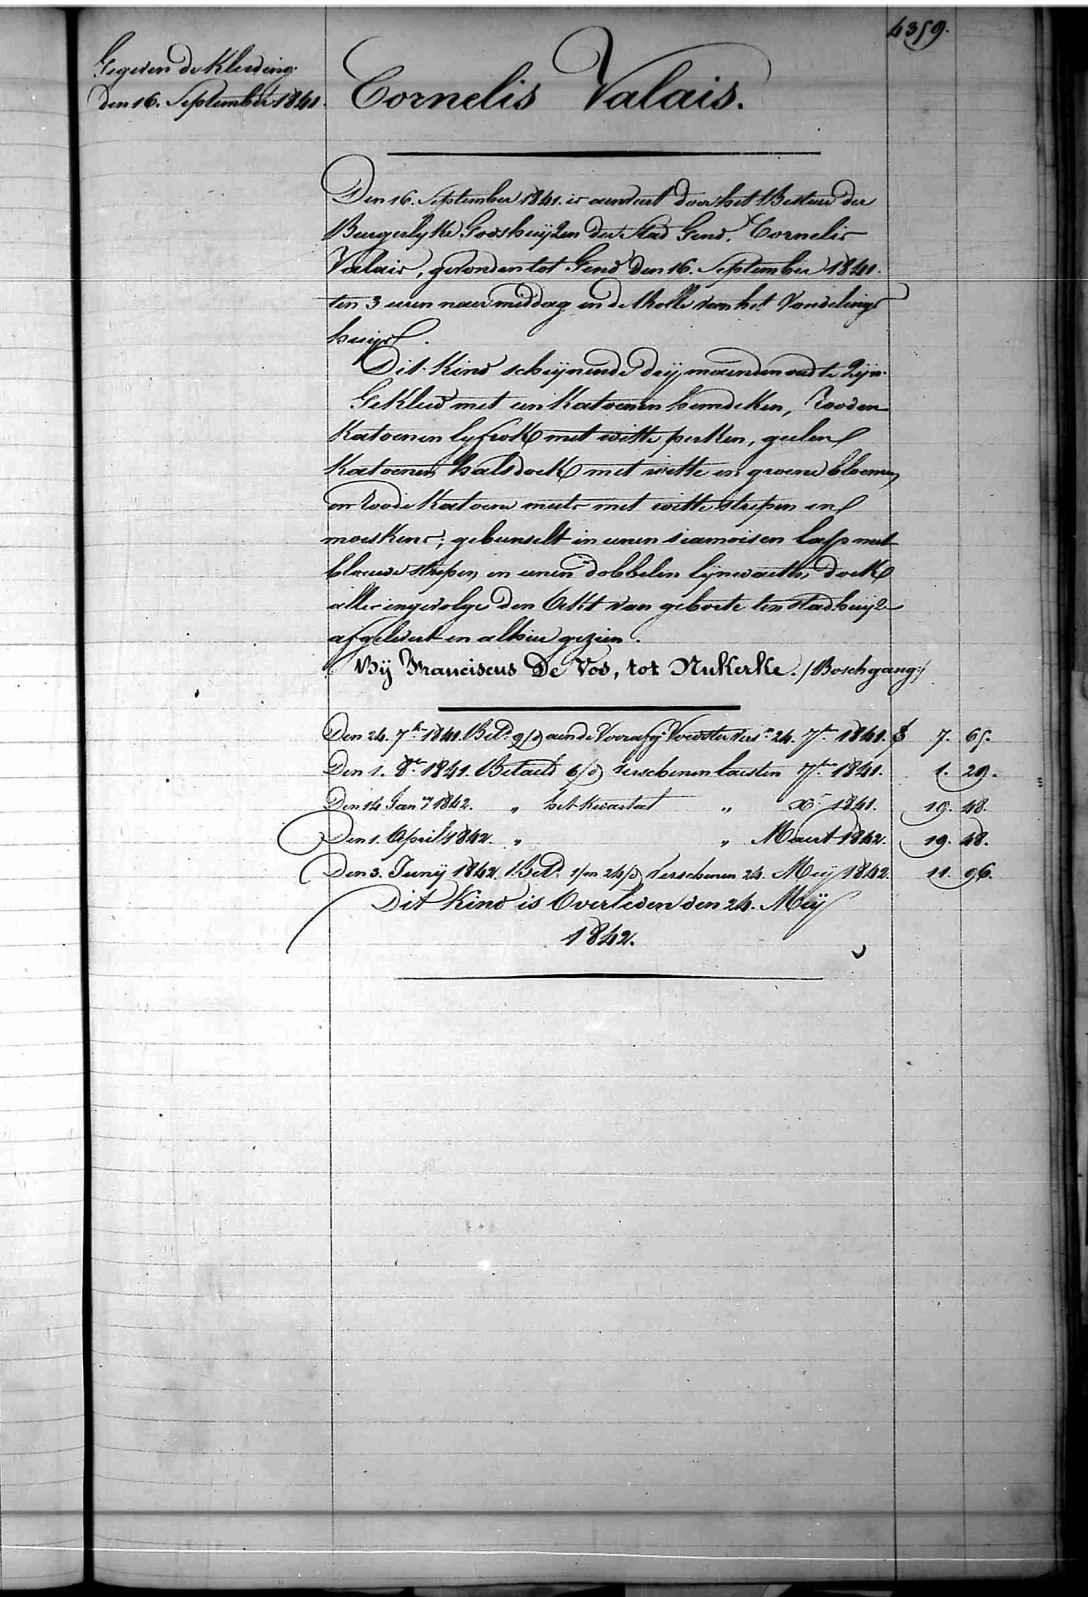 4359.
Gegeven de Kleeding
den 16. September 1841.
Cornelis Valais.
Den 16. September 1841. is aenveert door het Bestuer der
Burgerlyke Godshuijzen der Stad Gend. Cornelis
Valais, gevonden tot Gend den 16. September 1841.
ten 3 uren naer middag in de Rolle van het Vondelings
huijs.
Dit Kind scheijnende drij maenden oud te zijn.
Gekleed met een Katoenen hemdeken, Rooden
Katoenen lyfrok met witte perken, geelen
Katoenen halsdoek met witte en groene bloemen
en Roode Katoene muts met witte strepen en
moeskens; gebunselt in eenen siamoisen lap met
blauwe strepen en eenen dobbelen lijnwaeten doek
alles ingevolge den Akt van geboorte ten stadhuijze
afgelevert en alhier gezien.
Bij Franciscus De Vos, tot Nukerke. /Boschgang:/
Den 24. 7.br 1841. Bet.d 9/d aende Voorafg. Voedster vers.n 24. 7.br 1841. f 7. 65.
Den 1. 8.br 1841. Betaeld 6/d verschenen laesten 7.br 1841. 1. 29.
Den 14 Jan.ry 1842. " het Kwartael " X.br 1841. 19. 48.
Den 1. April 1842. " " Maert 1842. 19. 48.
Den 3. Junij 1842. Bet.d 1/m 24/d Verschenen 24. Meij 1842. 11. 96.
Dit Kind is Overleden den 24. Meij
1842.